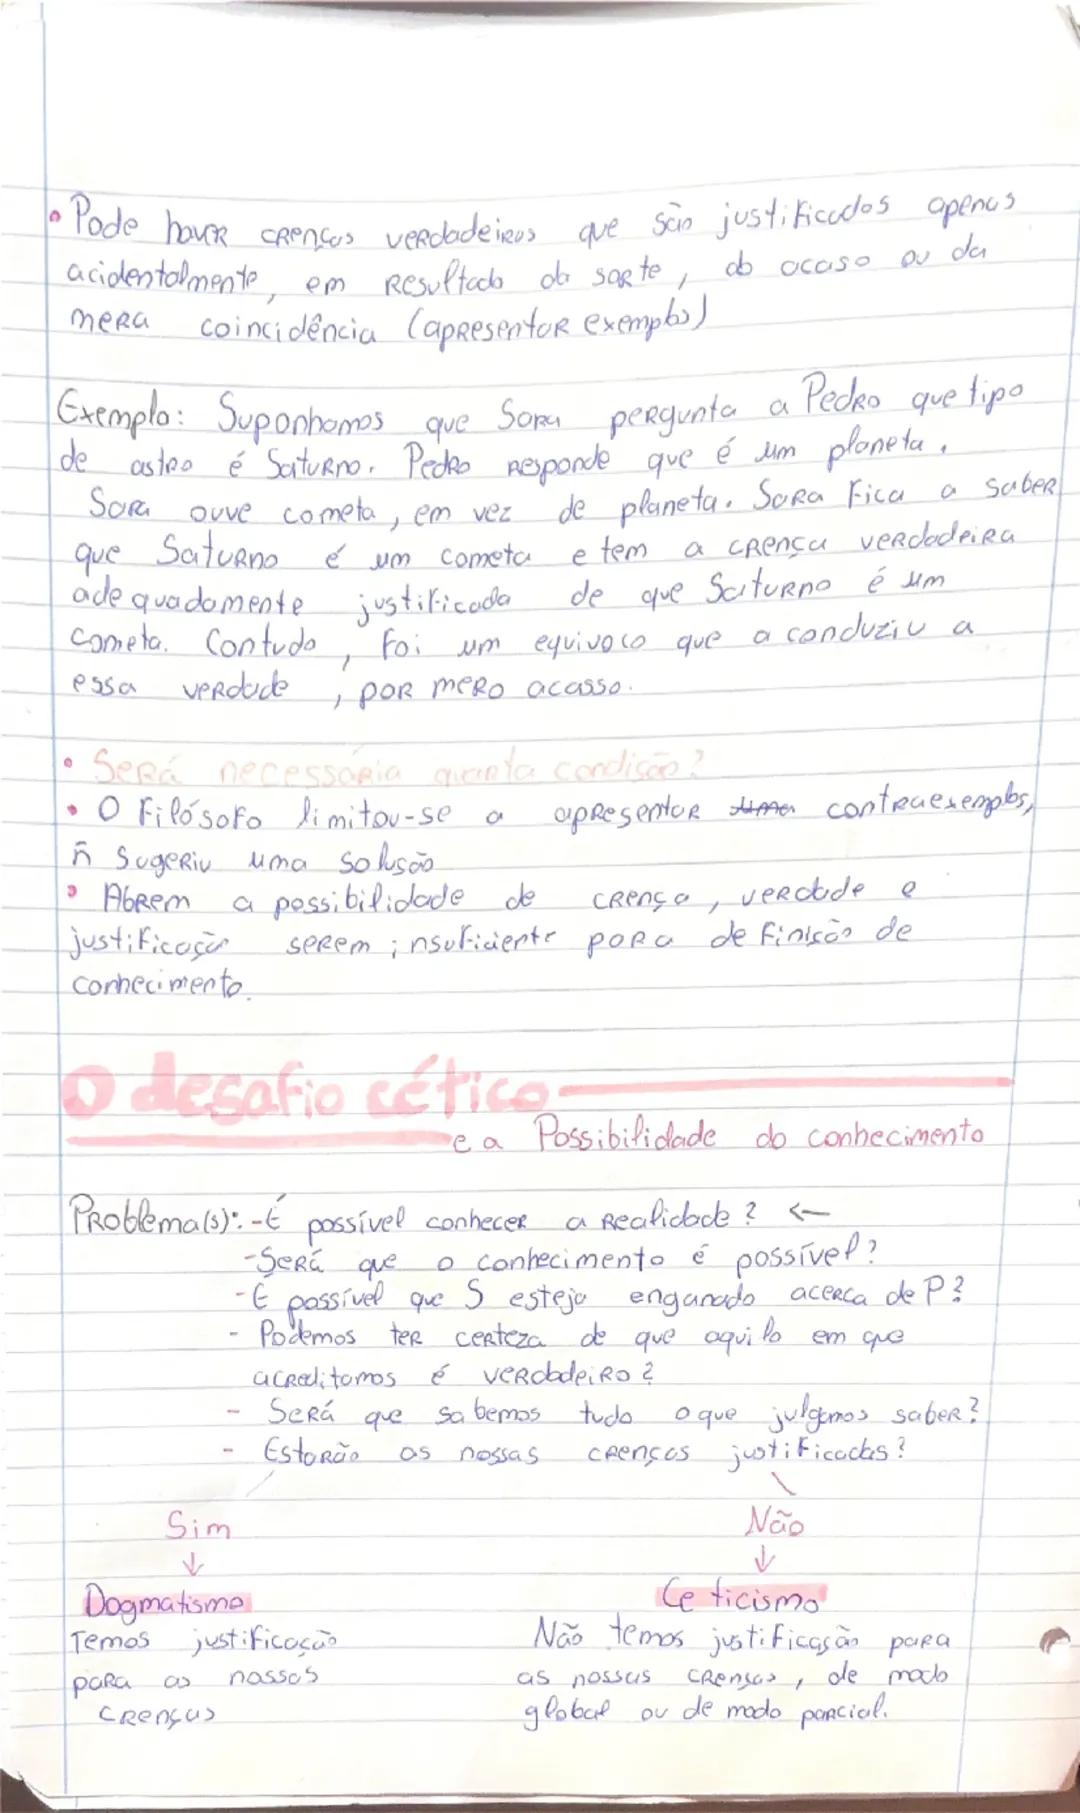 • Pode haver crenças verdadeiras que são justificadas apenas
acidentalmente, em resultado da sorte, do acaso ou da
mera coincidência (apresentar exemplos)
Exemplo: Suponhamos que Sara pergunta a Pedro que tipo
de astro é Saturno. Pedro responde que é um planeta.
Sara ouve cometa, em vez de planeta. Sara fica a saber
que Saturno é um cometa e tem a crença verdadeira
adequadamente justificada de que Saturno é um
cometa. Contudo, foi um equivoco que a conduziu a
essa verdade, por mero acasso.
• Será necessária quarta condição?
• O Filósofo limitou-se a apresentar uma contraexemplos,
ñ sugeriu uma solusão
• Abrem a possibilidade de crença, verdade e
justificação serem insuficiente para definisão de
conhecimento.
O desafio cético
e a Possibilidade do conhecimento
Problema(s): - É possível conhecer a realidade? ←
- Será que o conhecimento é possível?
- É possível que S esteja enganado acerca de P?
- Podemos ter certeza de que aquilo em que
acreditamos é verdadeiro?
- Será que sabemos tudo o que julgamos saber?
- Estarão as nossas crenças justificadas?
Sim Não
↓ ↓
Dogmatismo Ceticismo
Temos justificação Não temos justificasão para
para as nossas as nossas crenças, de modo
crenças global ou de modo parcial.